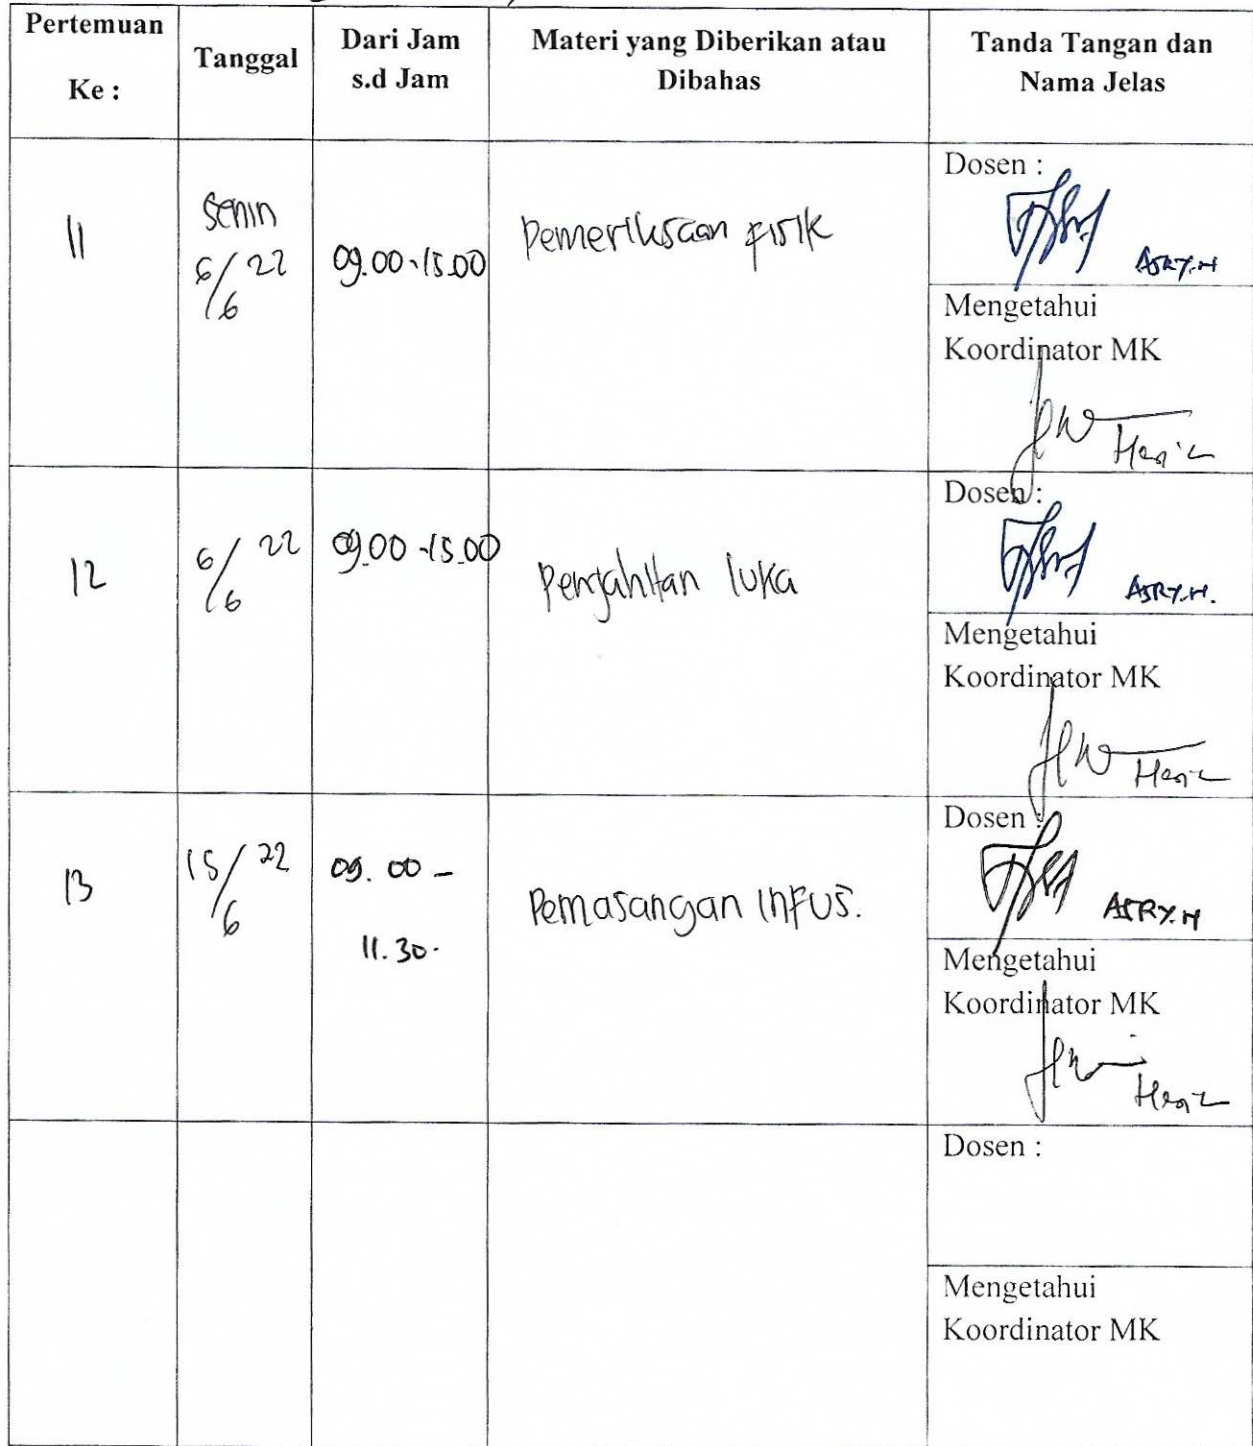 Pertemuan
Ke :
Tanggal
Dari Jam
s.d Jam
Materi yang Diberikan atau
Dibahas
Tanda Tangan dan
Nama Jelas
11
Senin
6/6 22
09.00-15.00
Pemeriksaan Fisik
Dosen :
ASRY.H
Mengetahui
Koordinator MK
12
6/6 22
09.00-15.00
Penjahitan luka
Dosen :
ASRY.H.
Mengetahui
Koordinator MK
13
15/6 22
09.00 -
11.30.
Pemasangan Infus.
Dosen :
ASRY.H
Mengetahui
Koordinator MK
Dosen :
Mengetahui
Koordinator MK